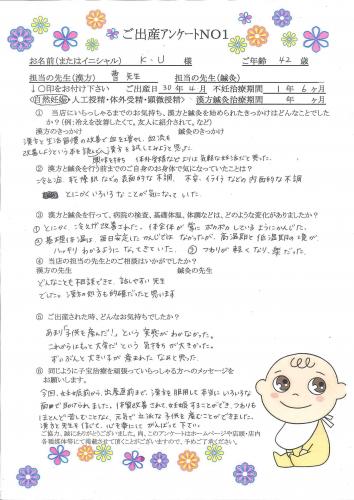 ご出産アンケートNO1
お名前(またはイニシャル) K・U 様 ご年齢 42 歳
担当の先生(漢方) 曹先生 担当の先生(鍼灸)
↓〇印をお付け下さい ご出産日 30年4月 不妊治療期間 1年6ヶ月
自然妊娠・人工授精・体外受精・顕微授精 漢方鍼灸治療期間 年 ヶ月
① 当店にいらっしゃるまでのお気持ち、漢方と鍼灸を始められたきっかけはどんなことでした
か？(例:冷えを改善したくて。友人に紹介されて。など)
漢方のきっかけ 鍼灸のきっかけ
漢方と生活習慣の改善で血を増やし、血流を
改善しようという本を読み、漢方を試してみようと思った。
興味を持ち (体外受精などよりは気軽な妊活だと思った。
② 漢方と鍼灸を行う前までのご自身のお身体で気になっていたことは？
冷え症、乾燥肌などの表面的な不調、不安、イライラなどの内面的な不調、
とにかくいろいろなことが気になっていた。
③ 漢方と鍼灸を行って、病院の検査、基礎体温、体調などは、どのような変化がありましたか？
① とにかく、冷えが改善された。体全体が常にポカポカしているようにかんじた。
② 基礎体温は、毎日安定したかんじではなかったが、高温期と低温期の境が
ハッキリわかるようになってきていた。 ③ つわりが軽くなり、楽だった。
④ 当店の担当の先生とのご相談はいかがでしたか？
漢方の先生 鍼灸の先生
どんなことも相談できて、話しやすい先生
でした。漢方の処方も的確だったと思います
⑤ ご出産された時、どんなお気持ちでしたか？
あまり「子供を産んだ！」という実感がわかなかった。
これからはもっと大変だという気持ちが大きかった。
ずいぶんと大きい子が産まれたなぁと思った。
⑥ 同じように子宝治療を頑張っていらっしゃる方へのメッセージを
お願いします。
今回、妊娠前から、出産直前まで、漢方を服用して本当にいろいろな
面で助けられました。体質改善されて妊娠することができ、つわりも
ほとんど苦しむことなく、元気で立派な子供を産むことができました。
漢方と先生を信じて、心を楽にしてがんばって下さい。
ご協力、誠にありがとうございました。尚、このアンケートはホームページや店頭・店内
各種媒体等にて掲載させて頂くことがございますので、予めご了承ください。